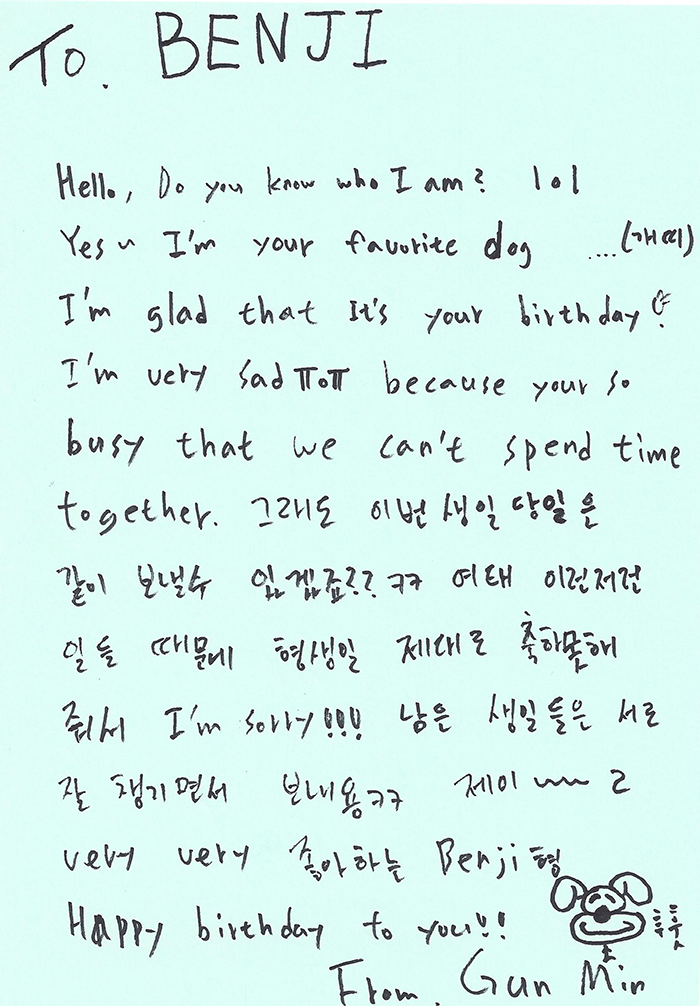 To. BENJI
Hello, Do you know who I am? lol
Yes~ I'm your favorite dog ....(개띠)
I'm glad that It's your birthday
I'm very sad ㅠoㅠ because your so
busy that we can't spend time
together. 그래도 이번 생일 당일은
같이 보낼수 있겠죠?? ㅋㅋ 여태 이런저런
일들 때문에 형생일 제대로 축하못해
줘서 I'm sorry!!! 남은 생일들은 서로
잘 챙기면서 보내용ㅋㅋ 제이~~ 2
very very 좋아하는 Benji형
HAppy birthday to you!!
From. Gun Min